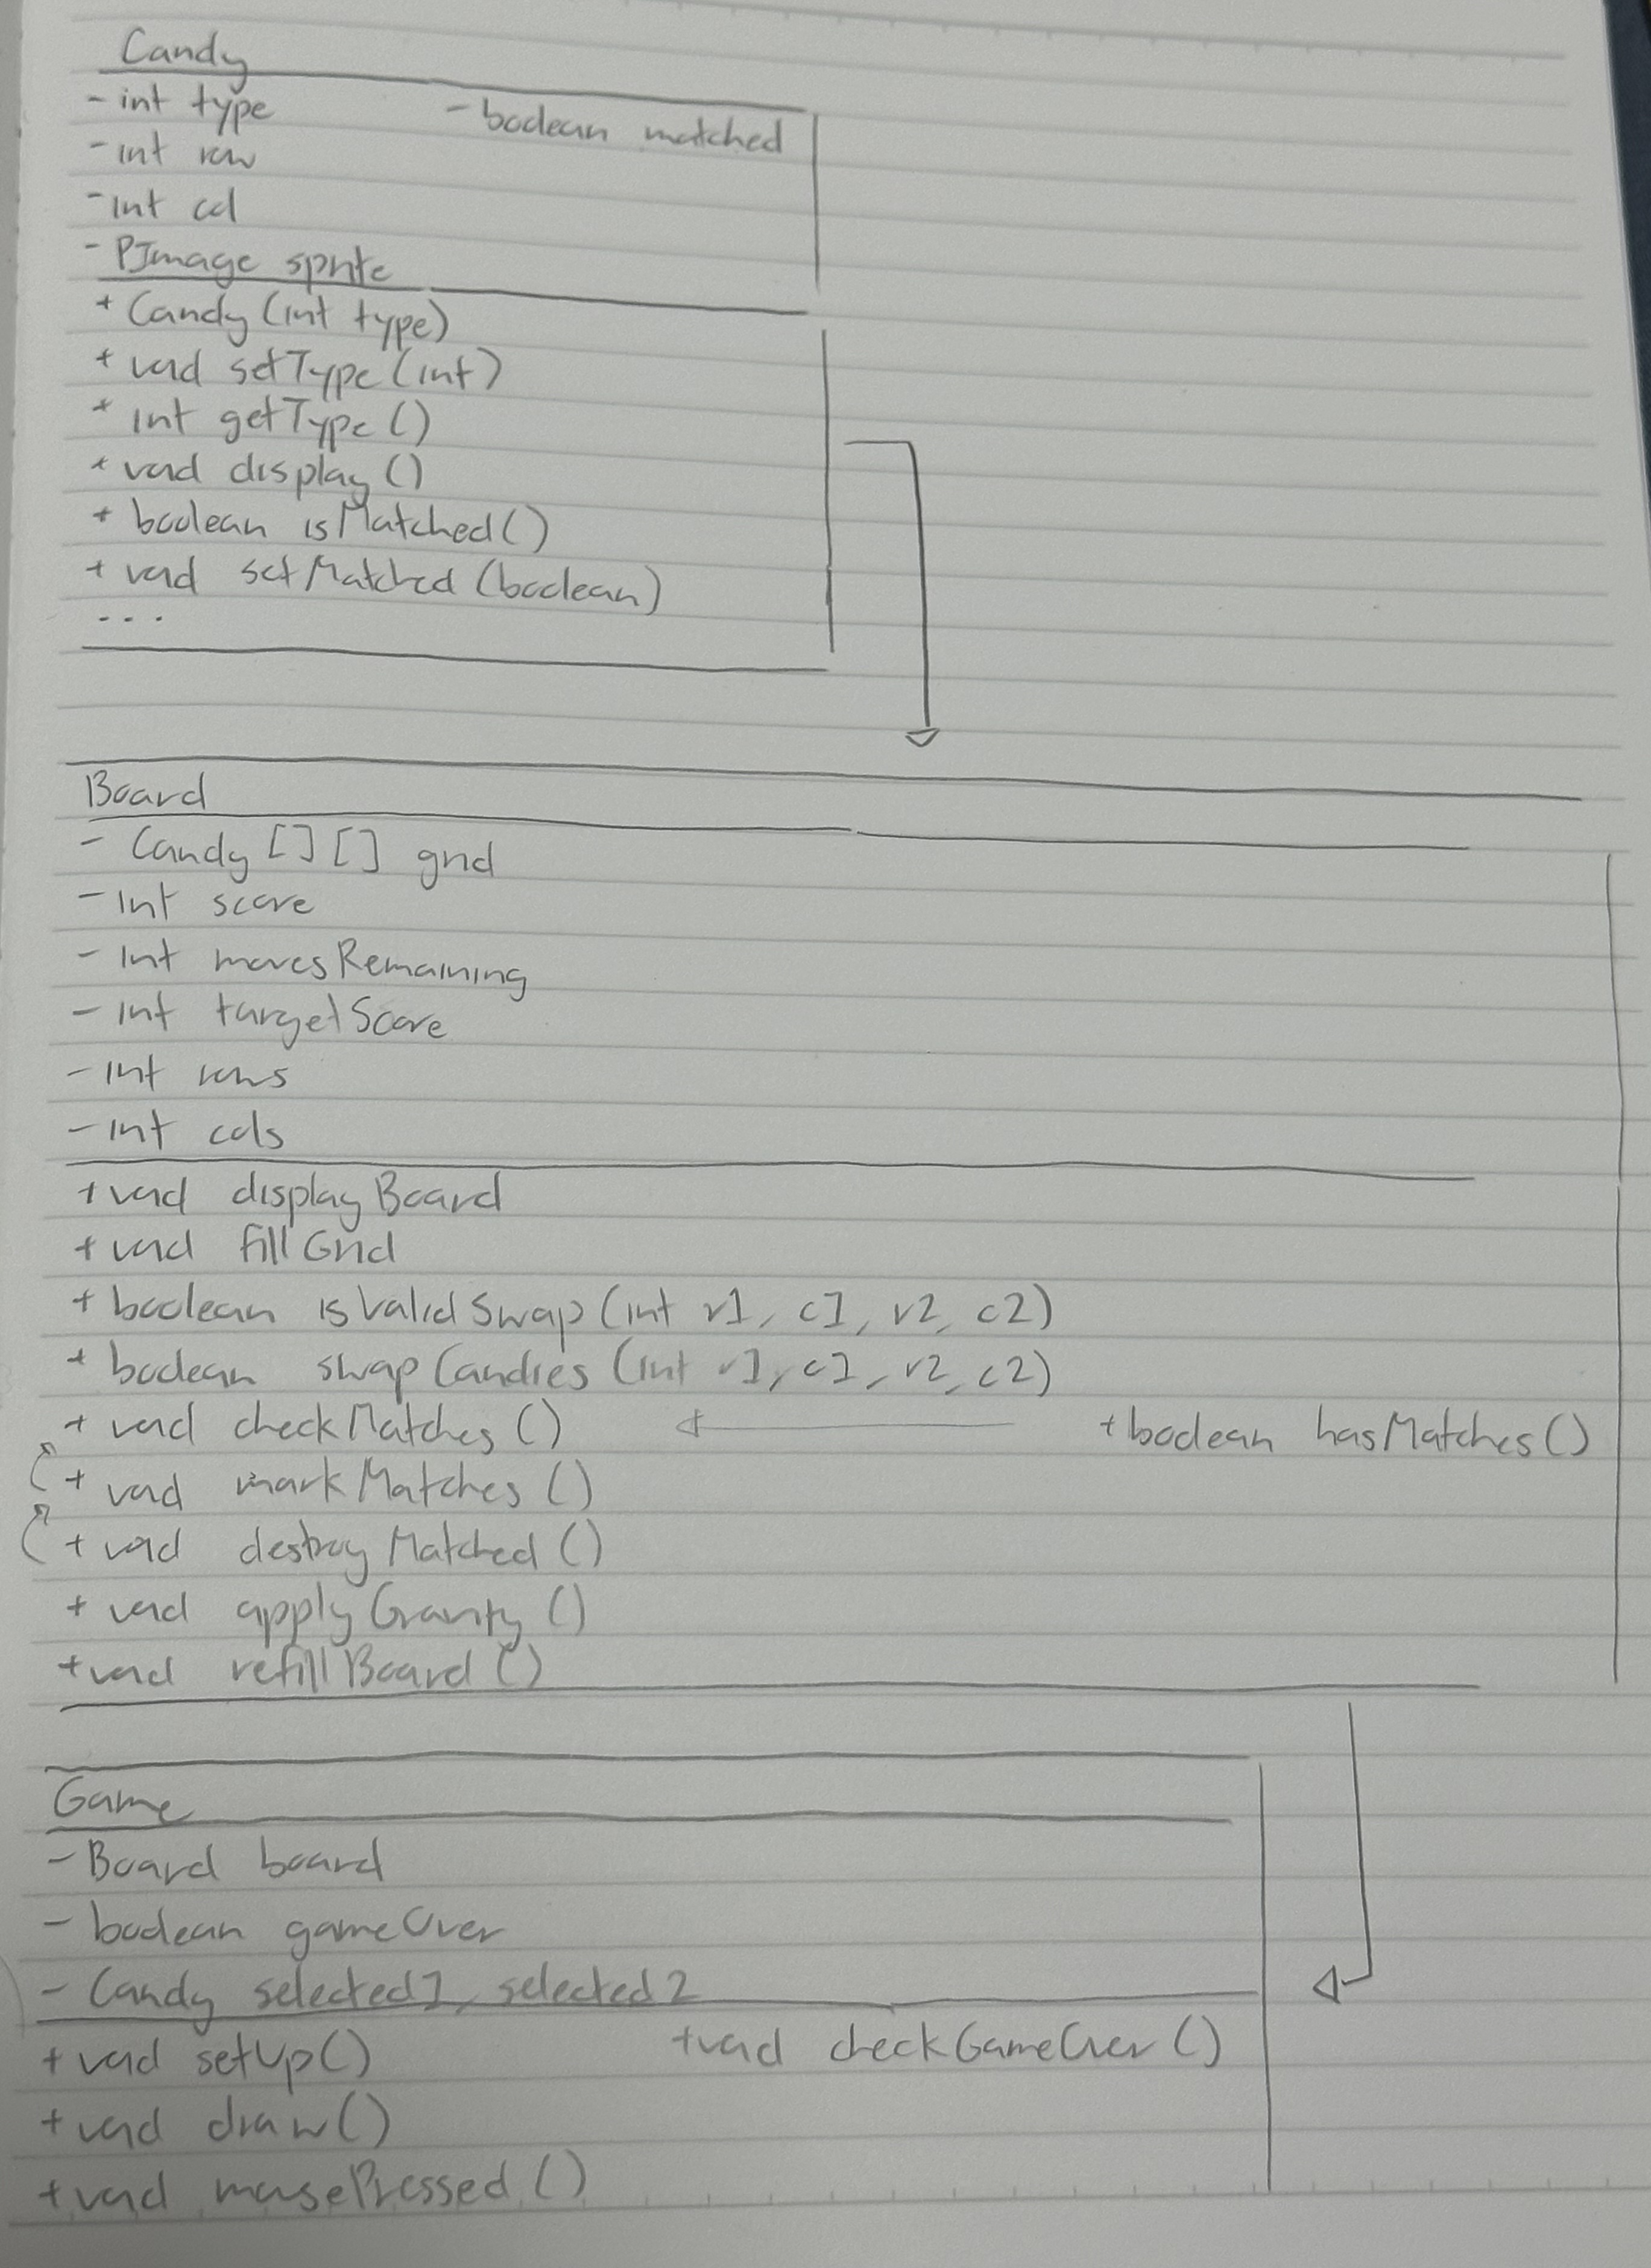 Candy
- int type - boolean matched
- int row
- int col
- PImage sprite
+ Candy (int type)
+ void setType (int)
+ int getType ()
+ void display ()
+ boolean isMatched ()
+ void setMatched (boolean)
...
Board
- Candy [] [] grid
- int score
- int movesRemaining
- int targetScore
- int rows
- int cols
+ void displayBoard
+ void fillGrid
+ boolean isValidSwap (int r1, c1, r2, c2)
+ boolean swapCandies (int r1, c1, r2, c2)
+ void checkMatches () + boolean hasMatches ()
+ void markMatches ()
+ void destroyMatched ()
+ void applyGravity ()
+ void refillBoard ()
Game
- Board board
- boolean gameOver
- Candy selected1, selected2
+ void setUp () + void checkGameOver ()
+ void draw ()
+ void mousePressed ()